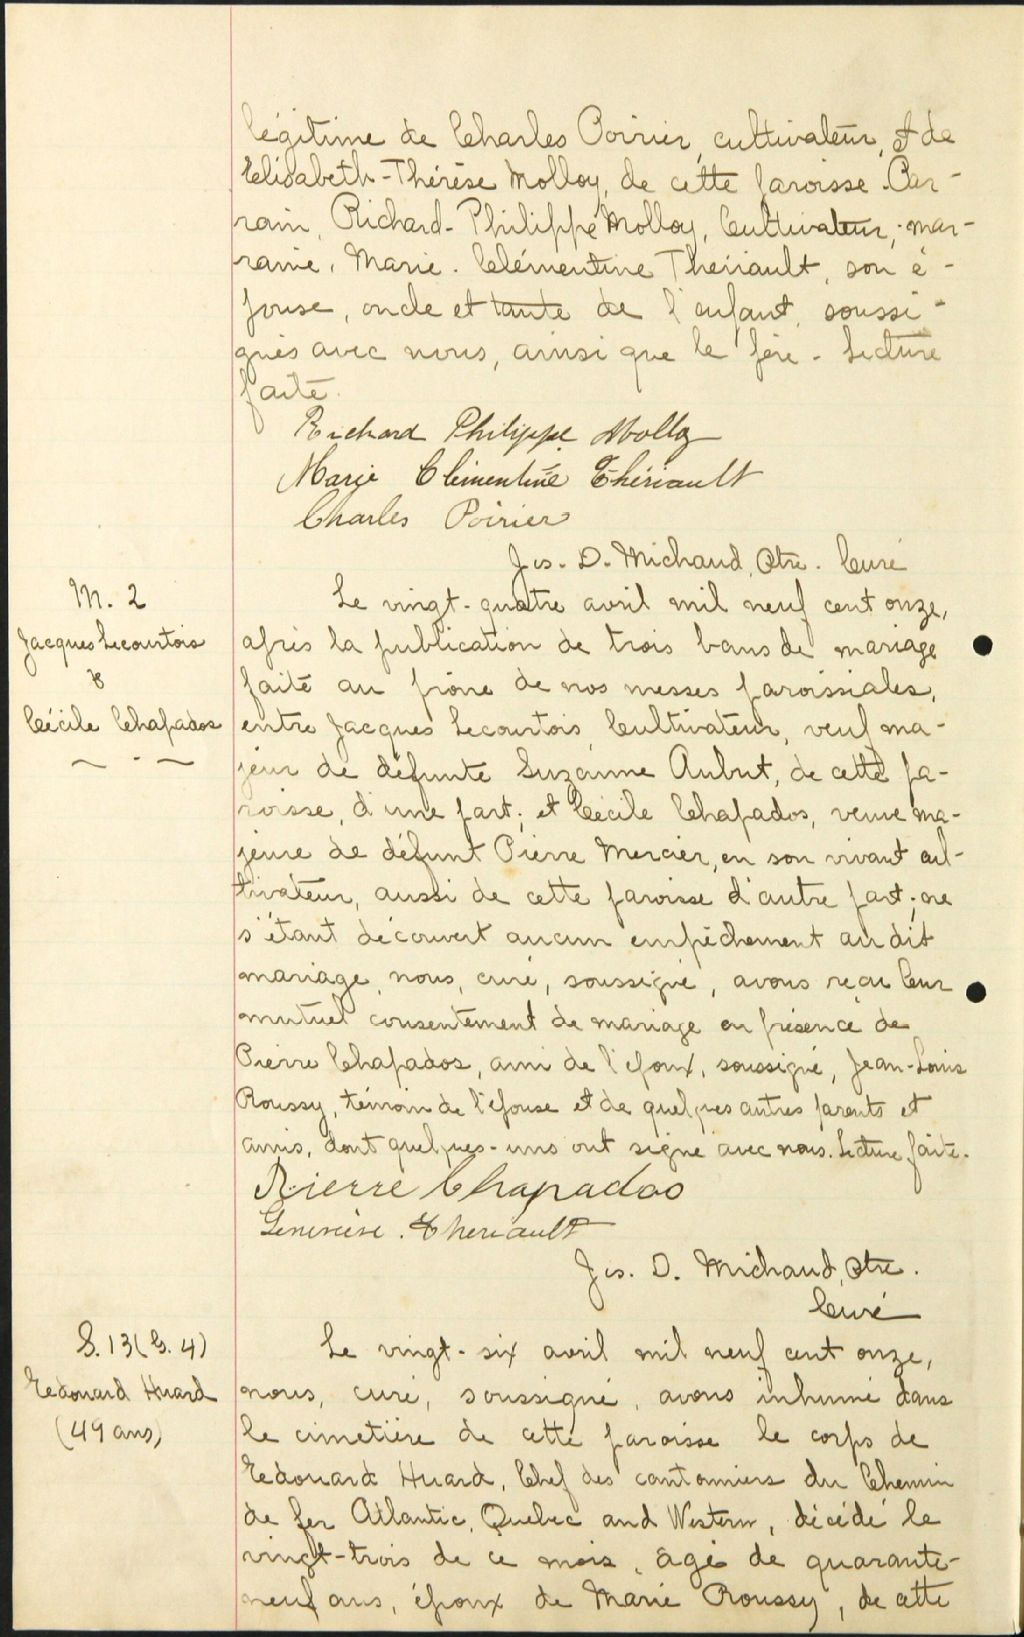 légitime de Charles Poirier, cultivateur, et de
Elisabeth-Thérèse Molloy, de cette paroisse. Par-
rain, Richard-Philippe Molloy, Cultivateur; mar-
raine, Marie-Clémentine Thériault, son é-
pouse, oncle et tante de l'enfant, soussi-
gnés avec nous, ainsi que le père. Lecture
faite.
Richard Philippe Molloy
Marie Clémentine Thériault
Charles Poirier
Jos. D. Michaud, Ptre. Curé
M. 2
Jacques Lecourtois
&
Cécile Chapados
Le vingt-quatre avril mil neuf cent onze,
après la publication de trois bans de mariage
faite au prône de nos messes paroissiales,
entre Jacques Lecourtois, Cultivateur, veuf ma-
jeur de défunte Suzanne Aubut, de cette pa-
roisse, d'une part; et Cécile Chapados, veuve ma-
jeure de défunt Pierre Mercier, en son vivant cul-
tivateur, aussi de cette paroisse d'autre part; ne
s'étant découvert aucun empêchement au dit
mariage, nous, curé, soussigné, avons reçu leur
mutuel consentement de mariage en présence de
Pierre Chapados, ami de l'époux, soussigné, Jean-Louis
Roussy, témoin de l'épouse et de quelques autres parents et
amis, dont quelques-uns ont signé avec nous. Lecture faite.
Pierre Chapados
Geneviève Theriault
Jos. D. Michaud, Ptre.
Curé
S. 13 (G. 4)
Edouard Huard
(49 ans)
Le vingt-six avril mil neuf cent onze,
nous, curé, soussigné, avons inhumé dans
le cimetière de cette paroisse le corps de
Edouard Huard, Chef des cantonniers du Chemin
de fer Atlantic, Quebec and Western, décédé le
vingt-trois de ce mois, âgé de quarante-
neuf ans, époux de Marie Roussy, de cette